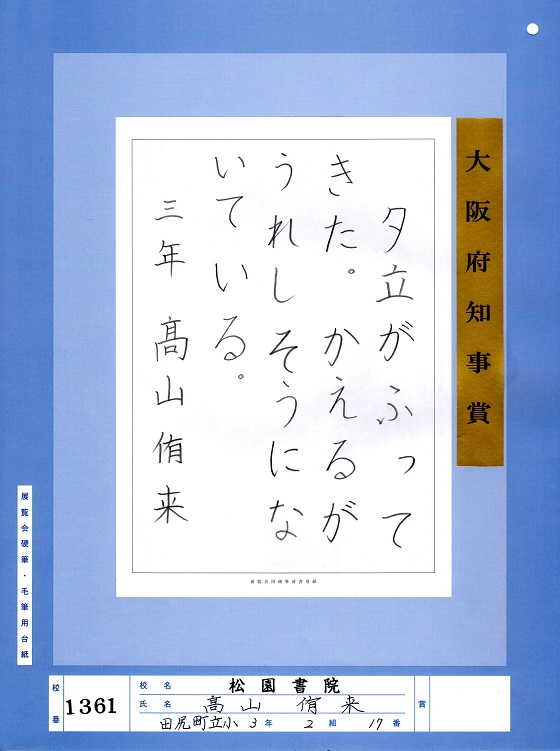 大阪府知事賞
夕立がふって
きた。かえるが
うれしそうにな
いている。
三年 髙山侑来
展覧会用硬筆清書用紙
展覧会硬筆・毛筆用台紙
校番 1361
校名 松園書院
氏名 髙山 侑来
田尻町立小 3年 2組 17番
賞